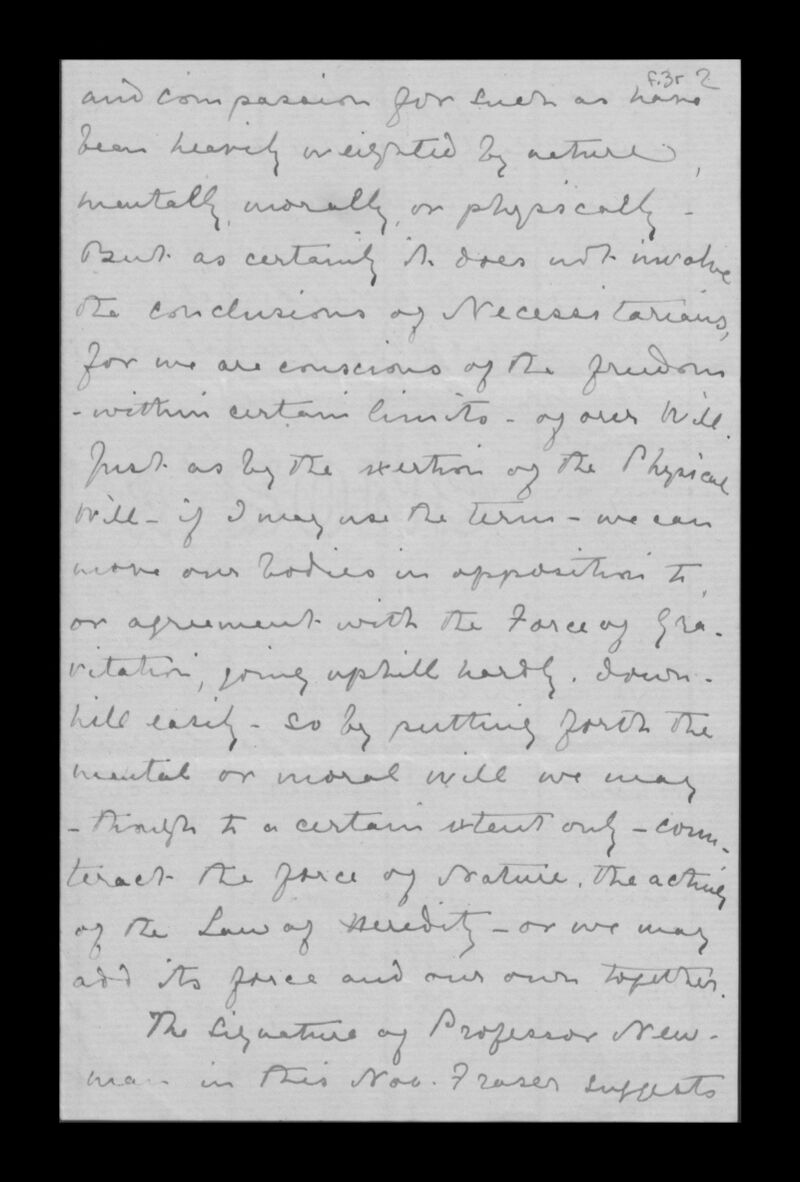 f.3r 2
and compassion for such as have
been heavily weighted by nature,
mentally, morally, or physically -
But as certainly it does not involve
the conclusions of Necessitarians,
for we are conscious of the freedom
- within certain limits - of our Will.
Just as by the exertion of the Physical
Will - if I may use the term - we can
move our bodies in opposition to,
or agreement with the Force of Gra-
vitation, going uphill hardly, down-
hill easily - so by putting forth the
mental or moral will we may
- though to a certain extent only - coun-
teract the force of Nature, the acting
of the Law of Heredity - or we may
add its force and our own together.
The signature of Professor New-
man in this Nov. Fraser suggests